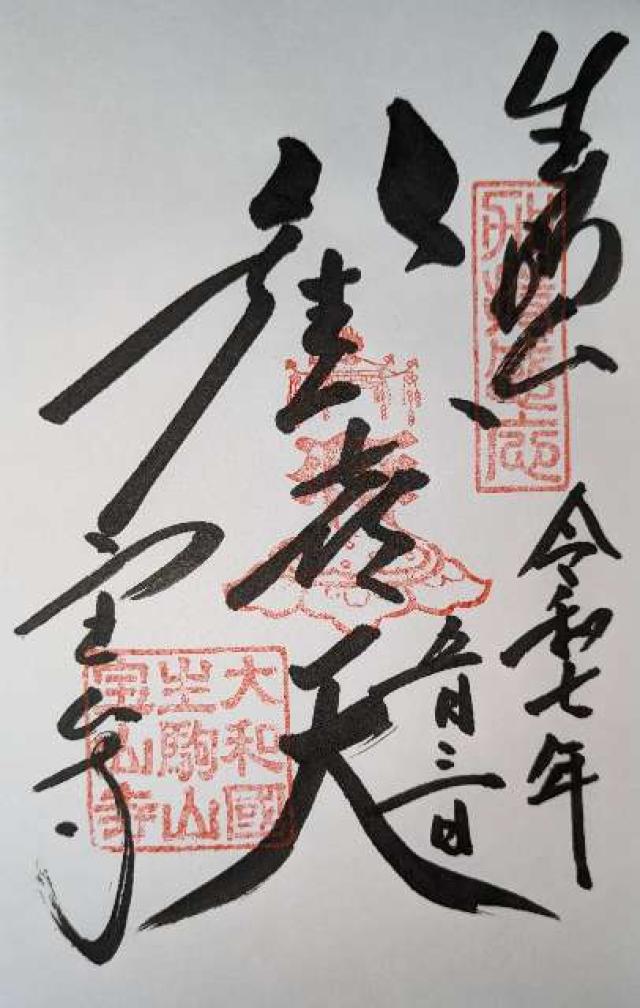 生駒山
令和七年
五月三日
歓喜天
宝山寺
大和國
生駒山
宝山寺